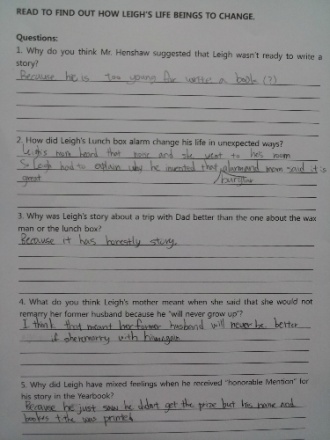 READ TO FIND OUT HOW LEIGH'S LIFE BEINGS TO CHANGE.
Questions:
1. Why do you think Mr. Henshaw suggested that Leigh wasn't ready to write a
story?
Because he is too young to write a book (??)
2. How did Leigh's Lunch box alarm change his life in unexpected ways?
Leigh's mom heard that noise and she went to his room
So Leigh had to explain why he invented that alarm and mom said it's
great burglar
3. Why was Leigh's story about a trip with Dad better than the one about the wax
man or the lunch box?
Because it has honestly story.
4. What do you think Leigh's mother meant when she said that she would not
remarry her former husband because he "will never grow up"?
I think that meant her former husband will never be better
if she marry with him again
5. Why did Leigh have mixed feelings when he received "honorable Mention" for
his story in the Yearbook?
Because he just saw he didn't get the prize but his name and
was printed